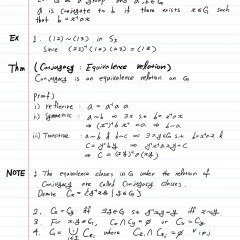 Let G be a group and a,b∈G
a is conjugate to b if there exists x∈G such
that b = x⁻¹ax
Ex 1. (12) ~ (13) in S₃
Since (23)⁻¹(12)(23) = (13)
Thm (Conjugacy : Equivalence relation)
Conjugacy is an equivalence relation on G
proof)
i) reflexive : a = e⁻¹ae
ii) symmetric : a~b ⇒ ∃x s.t. b = x⁻¹ax
⇒ (x⁻¹)⁻¹bx⁻¹ = a ⇒ b~a
iii) Transitive : a~b & b~c ⇒ ∃x,y∈G s.t. b = x⁻¹ax &
c = y⁻¹by ⇒ y⁻¹x⁻¹axy = c
⇒ c = (xy)⁻¹a(xy)
NOTE 1. The equivalence classes in G under the relation of
Conjugacy are called Conjugacy classes.
Denote
2.
3. For x,y∈G, Cx ∩ Cy = ∅ or Cx = Cy
4. G = ∪ where = ∅